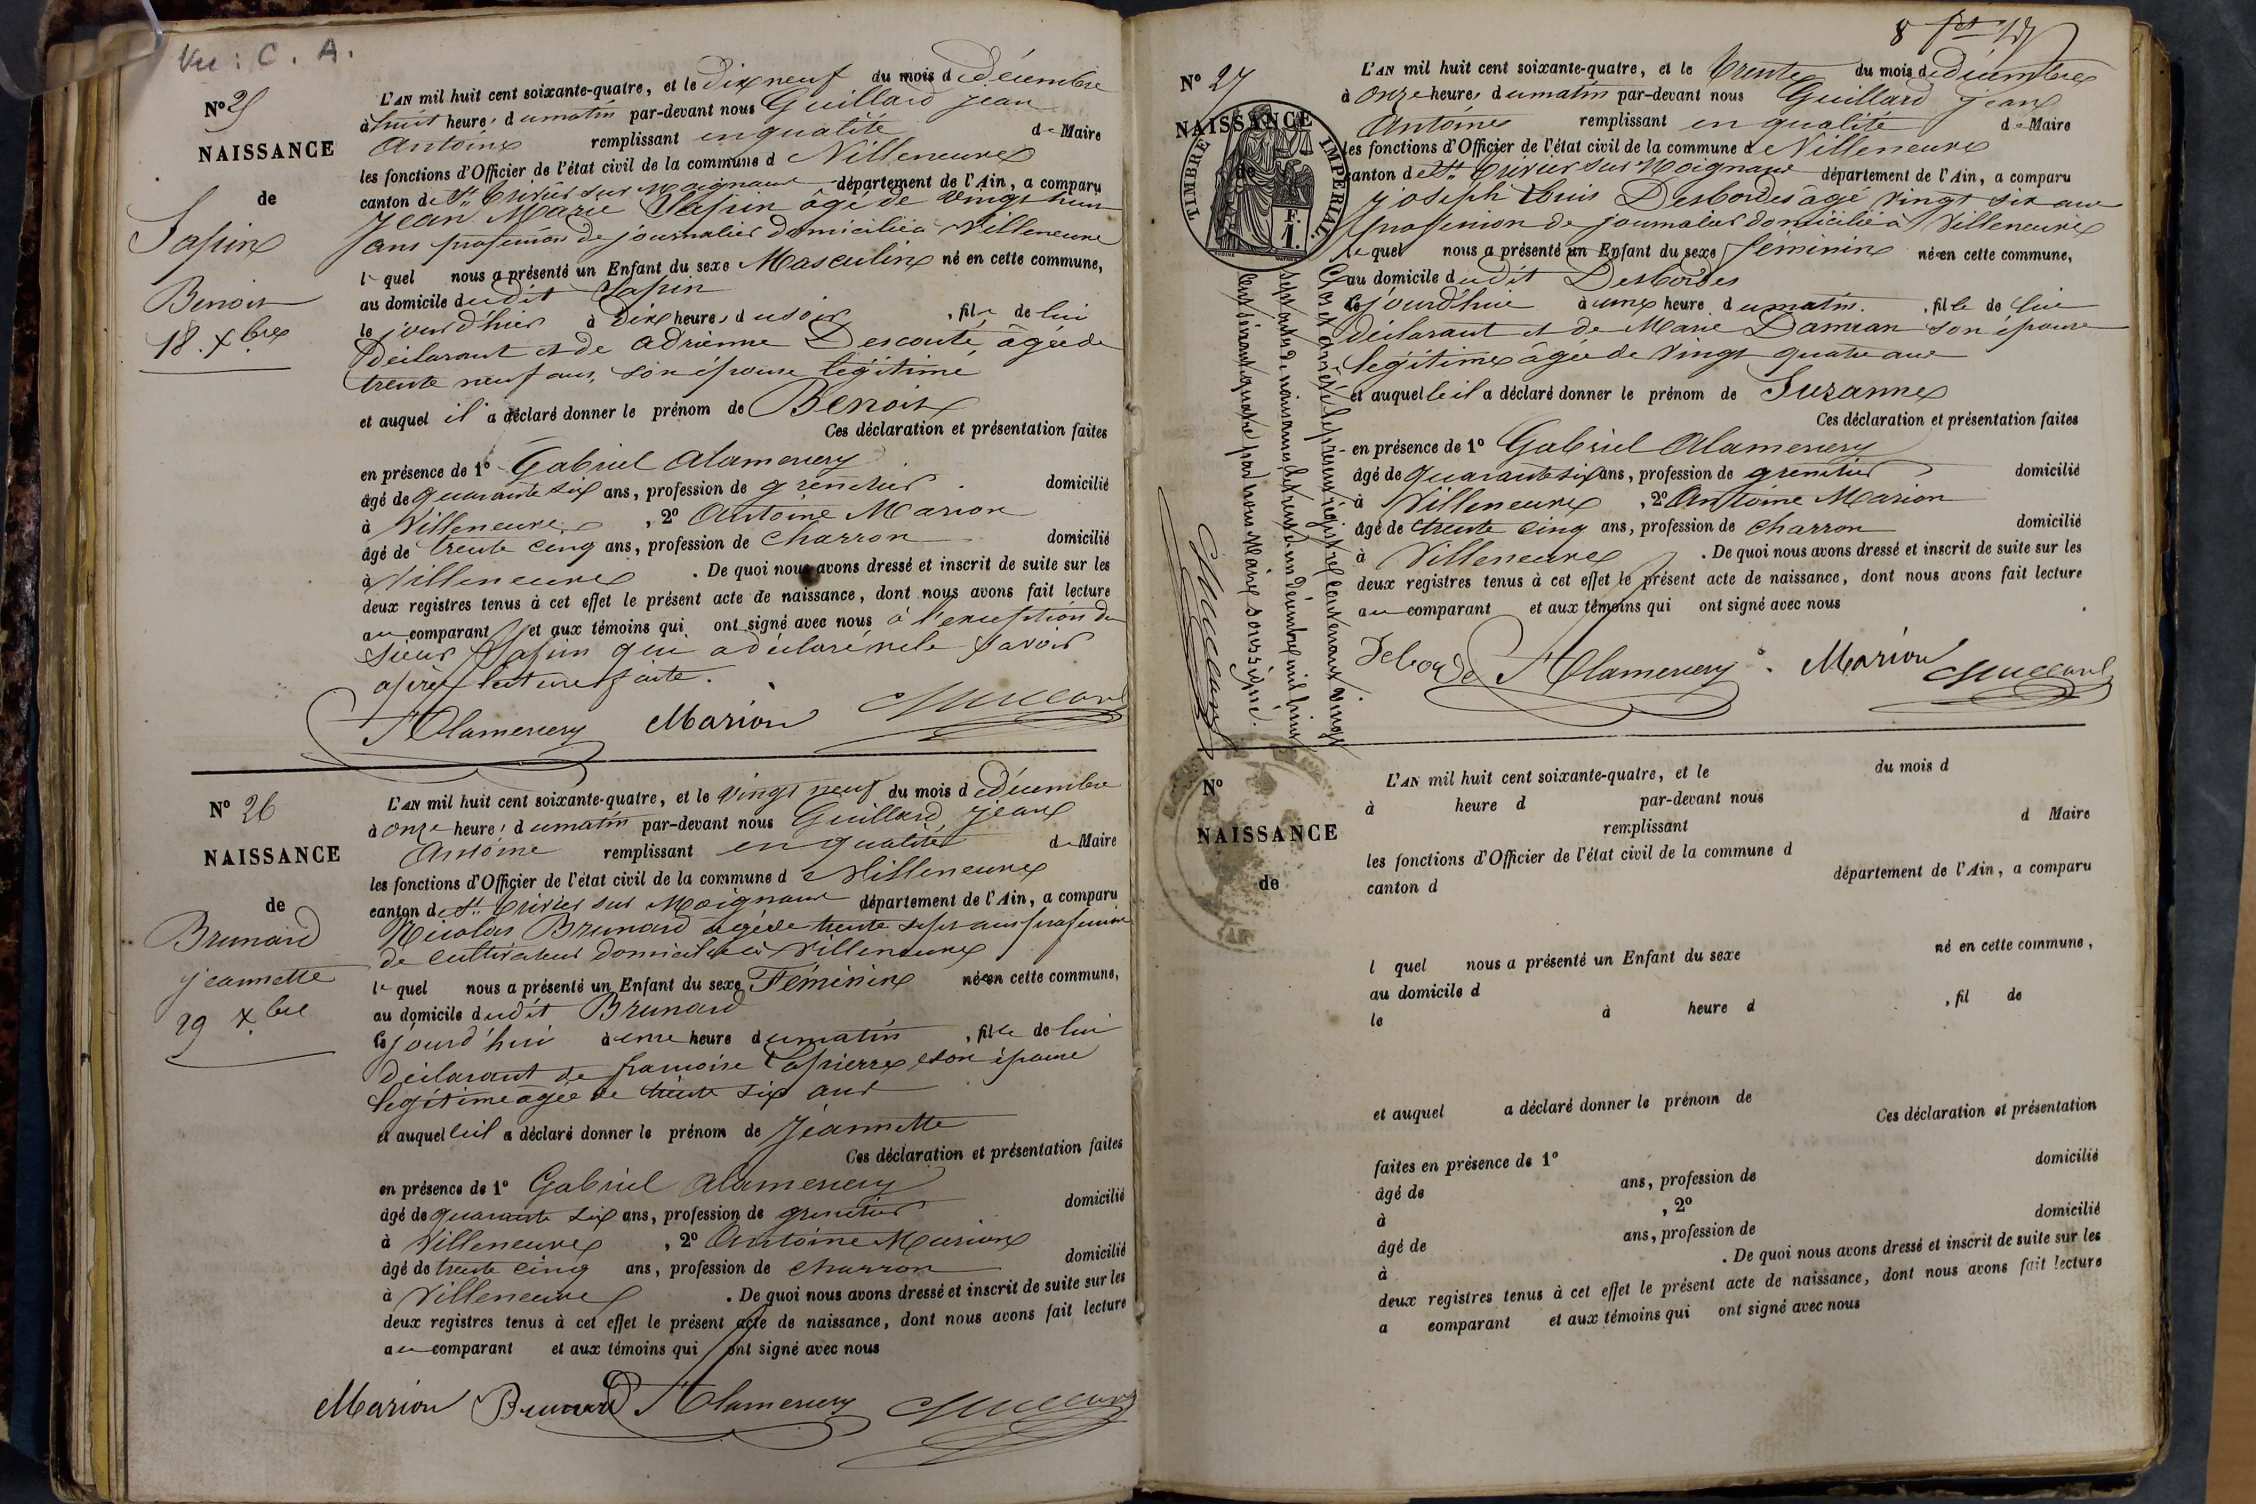 Vu : C. A.
N° 25
NAISSANCE
de
Sapin
Benoit
18. Xbre
L'AN mil huit cent soixante-quatre, et le Dix neuf du mois de Décembre
à huit heures du matin par-devant nous Guillard jean
Antoine remplissant en qualité de Maire
les fonctions d'Officier de l'état civil de la commune de Villeneuve
canton de St Trivier sur Moignans département de l'Ain, a comparu
Jean Marie Sapin âgé de vingt neuf
ans profession de journalier domicilié à Villeneuve
lequel nous a présenté un Enfant du sexe Masculin né en cette commune,
au domicile dudit Sapin
le jourd'hier à Dix heures du soir, fils de lui
Déclarant et de Adrienne Descoute, âgée de
trente neuf ans, son épouse légitime
et auquel il a déclaré donner le prénom de Benoit
Ces déclaration et présentation faites
en présence de 1° Gabriel Alamercery
âgé de quarante six ans, profession de grenetier domicilié
à Villeneuve, 2° Antoine Marion
âgé de trente cinq ans, profession de charron domicilié
à Villeneuve. De quoi nous avons dressé et inscrit de suite sur les
deux registres tenus à cet effet le présent acte de naissance, dont nous avons fait lecture
au comparant et aux témoins qui ont signé avec nous à l'exception du
sieur Sapin qui a déclaré ne le savoir
après lecture faite.
Alamercery Marion Guillard
N° 26
NAISSANCE
de
Brunard
jeannette
29 Xbre
L'AN mil huit cent soixante-quatre, et le vingt neuf du mois de Décembre
à onze heures du matin par-devant nous Guillard jean
Antoine remplissant en qualité de Maire
les fonctions d'Officier de l'état civil de la commune de Villeneuve
canton de St Trivier sur Moignans département de l'Ain, a comparu
Nicolas Brunard âgé de trente sept ans profession
de cultivateur domicilié à Villeneuve
lequel nous a présenté un Enfant du sexe Féminin née en cette commune,
au domicile dudit Brunard
ce jourd'hui à une heure du matin, fille de lui
Déclarant de françoise Lapierre son épouse
légitime âgée de trente six ans
et auquelle il a déclaré donner le prénom de Jeannette
Ces déclaration et présentation faites
en présence de 1° Gabriel Alamercery
âgé de quarante six ans, profession de grenetier domicilié
à Villeneuve, 2° Antoine Marion
âgé de trente cinq ans, profession de charron domicilié
à Villeneuve. De quoi nous avons dressé et inscrit de suite sur les
deux registres tenus à cet effet le présent acte de naissance, dont nous avons fait lecture
au comparant et aux témoins qui ont signé avec nous
Marion Brunard Alamercery Guillard
8
N° 27
NAISSANCE
de
TIMBRE IMPERIAL.
1 F.
L'AN mil huit cent soixante-quatre, et le trente du mois de décembre
à onze heures du matin par-devant nous Guillard jean
Antoine remplissant en qualité de Maire
les fonctions d'Officier de l'état civil de la commune de Villeneuve
canton de St Trivier sur Moignans département de l'Ain, a comparu
joseph Louis Desbordes âgé vingt six ans
profession de journalier domicilié à Villeneuve
lequel nous a présenté un Enfant du sexe féminin née en cette commune,
au domicile dudit Desbordes
ce jourd'hui à une heure du matin, fille de lui
déclarant et de Marie Damian son épouse
légitime âgée de vingt quatre ans
et auquelle il a déclaré donner le prénom de Suzanne
Ces déclaration et présentation faites
en présence de 1° Gabriel Alamercery
âgé de quarante six ans, profession de grenetier domicilié
à Villeneuve, 2° Antoine Marion
âgé de trente cinq ans, profession de charron domicilié
à Villeneuve. De quoi nous avons dressé et inscrit de suite sur les
deux registres tenus à cet effet le présent acte de naissance, dont nous avons fait lecture
au comparant et aux témoins qui ont signé avec nous
Alamercery Marion Guillard
Clos et arrêté le présent registre contenant vingt
sept actes de naissances le trente un décembre mil huit
cent soixante quatre par nous Maire soussigné.
Guillard
N°
NAISSANCE
de
L'AN mil huit cent soixante-quatre, et le du mois d
à heure d par-devant nous
remplissant d Maire
les fonctions d'Officier de l'état civil de la commune d
canton d département de l'Ain, a comparu
l quel nous a présenté un Enfant du sexe né en cette commune,
au domicile d
le à heure d , fil de
et auquel a déclaré donner le prénom de
Ces déclaration et présentation
faites en présence de 1°
âgé de ans, profession de domicilié
à , 2°
âgé de ans, profession de domicilié
à . De quoi nous avons dressé et inscrit de suite sur les
deux registres tenus à cet effet le présent acte de naissance, dont nous avons fait lecture
a comparant et aux témoins qui ont signé avec nous